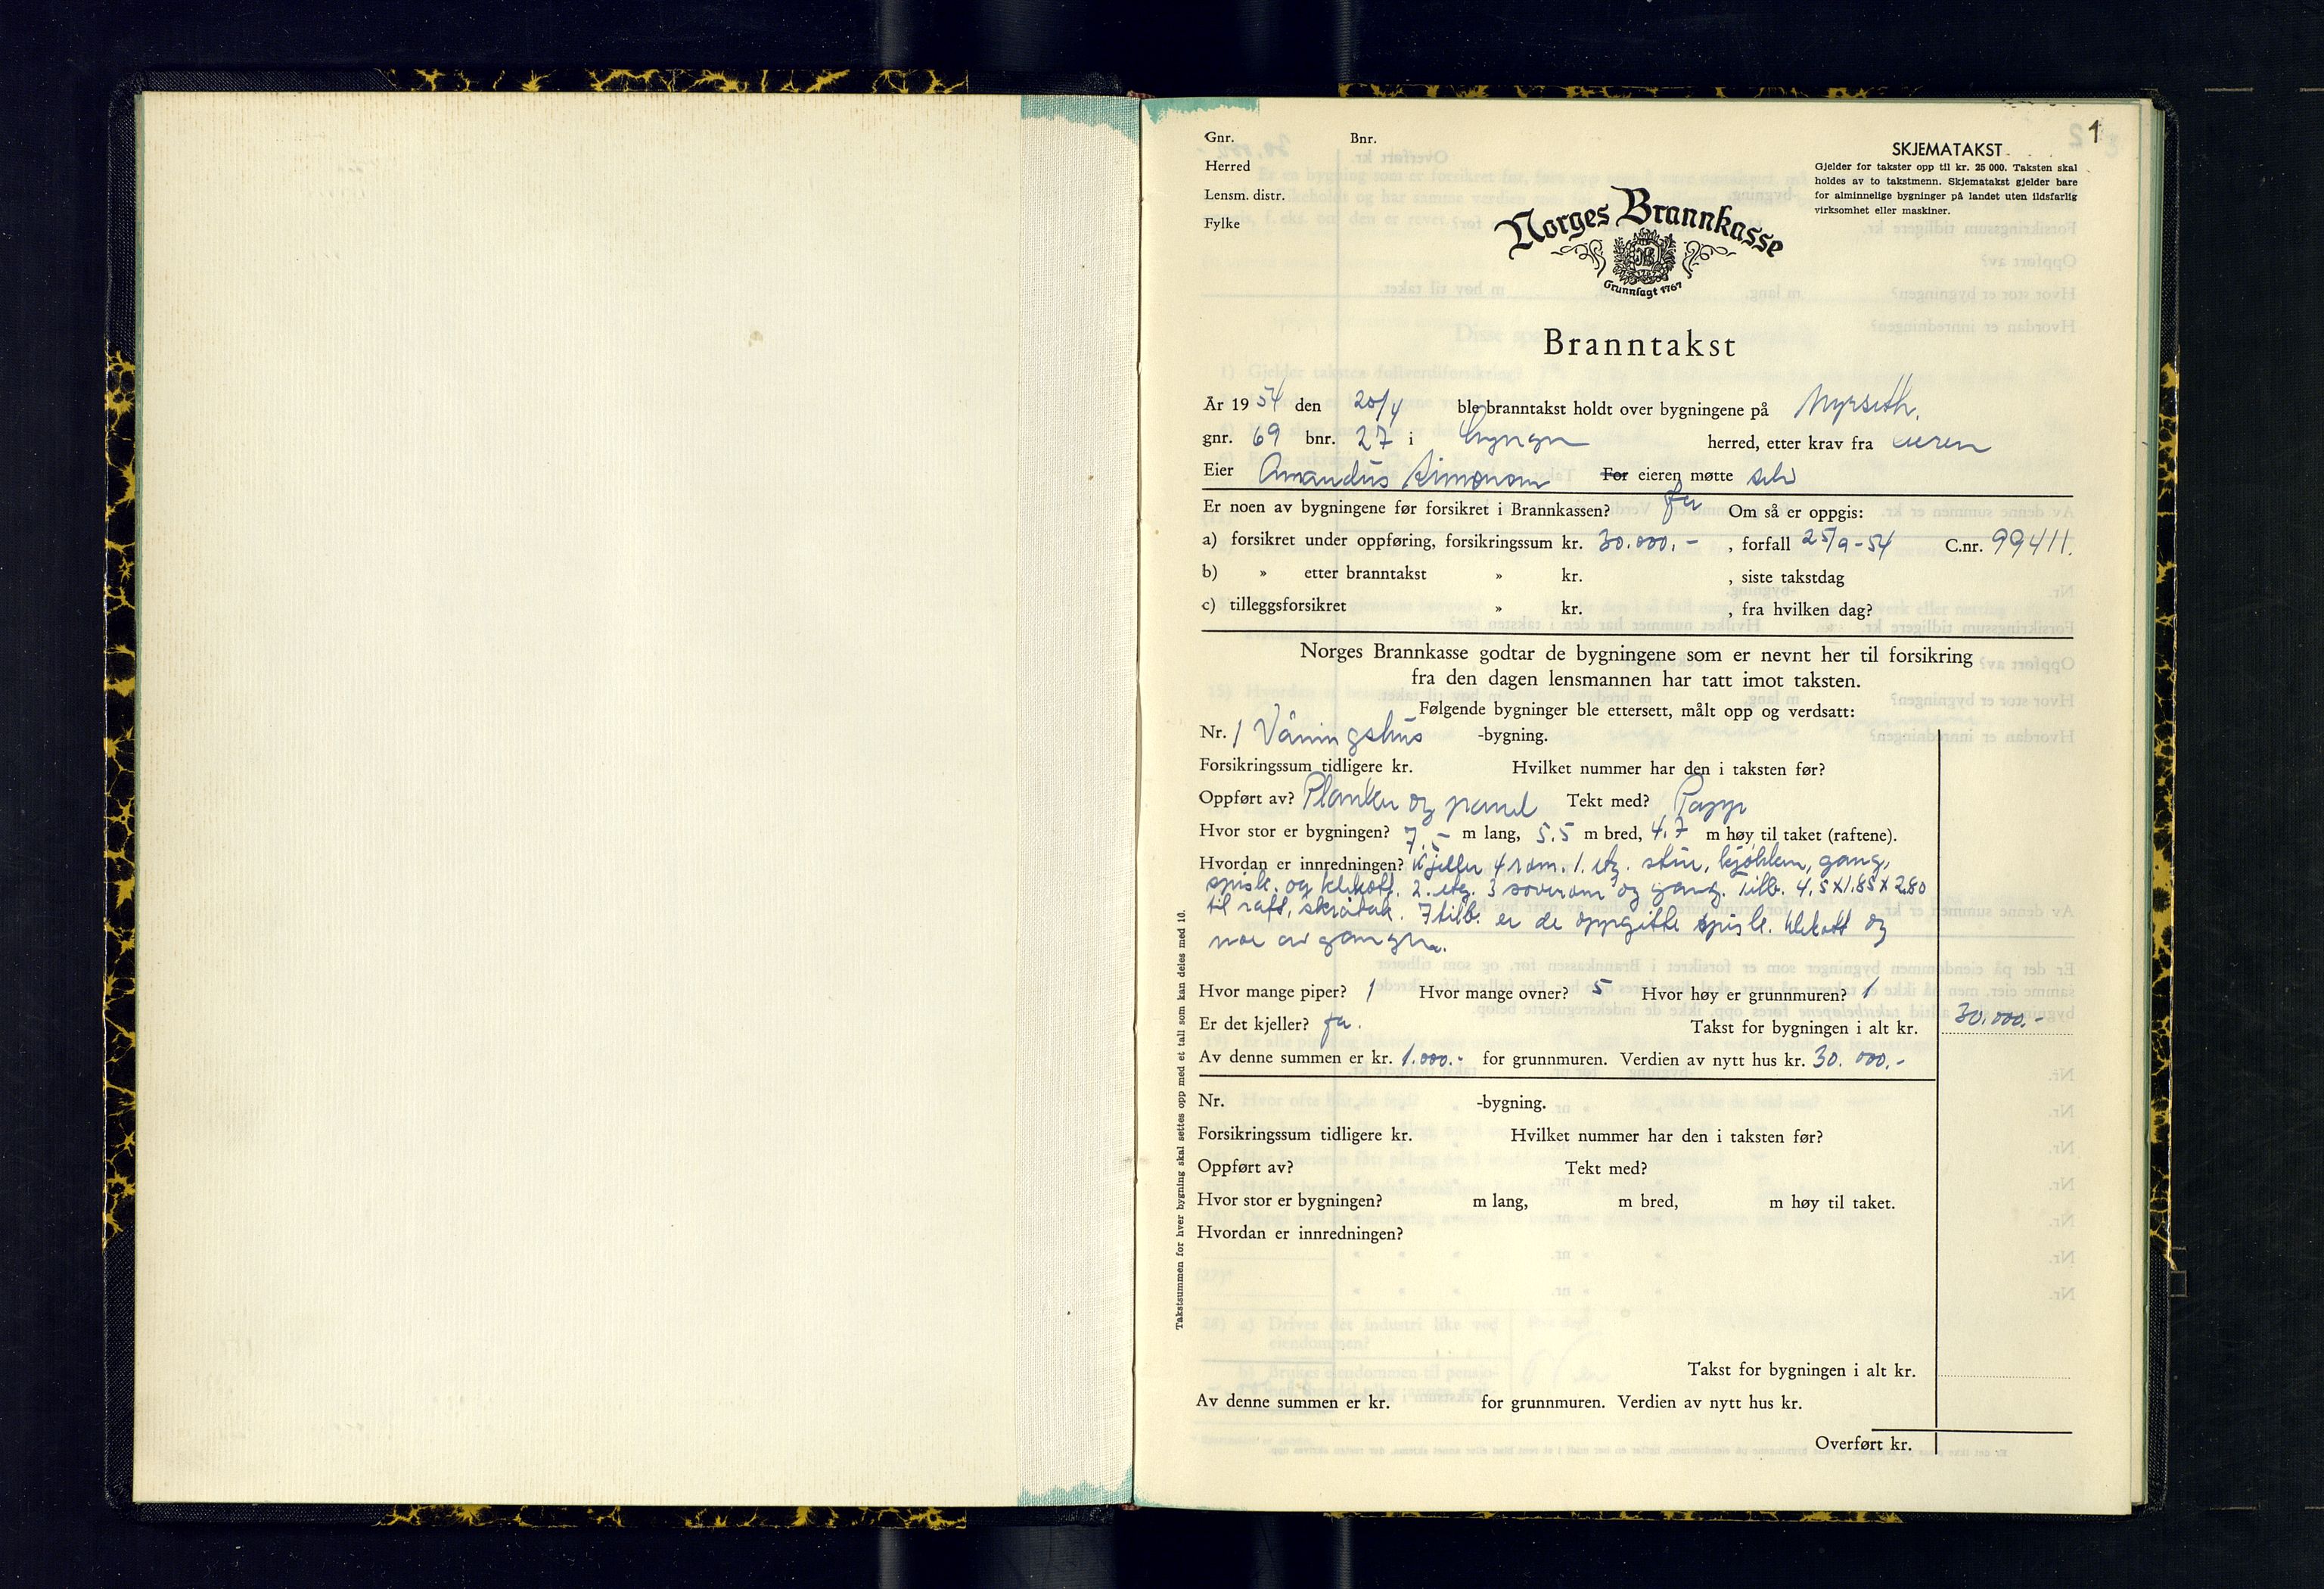 1
Gnr. Bnr.
Herred
Lensm. distr.
Fylke
SKJEMATAKST
Gjelder for takster opp til kr. 25 000. Taksten skal
holdes av to takstmenn. Skjematakst gjelder bare
for alminnelige bygninger på landet uten ildsfarlig
virksomhet eller maskiner.
Norges Brannkasse
Grunnlagt 1767
Branntakst
År 1954 den 20/4 ble branntakst holdt over bygningene på Myrseth.
gnr. 69 bnr. 27 i Lyngen herred, etter krav fra eieren
Eier Amandus Simonsen For eieren møtte selv
Er noen av bygningene før forsikret i Brannkassen? Ja Om så er oppgis:
a) forsikret under oppføring, forsikringssum kr. 30.000.- , forfall 25/9-54 C.nr. 99411.
b) » etter branntakst » kr. , siste takstdag
c) tilleggsforsikret » kr. , fra hvilken dag?
Norges Brannkasse godtar de bygningene som er nevnt her til forsikring
fra den dagen lensmannen har tatt imot taksten.
Følgende bygninger ble ettersett, målt opp og verdsatt:
Nr. 1 Våningshus -bygning.
Forsikringssum tidligere kr. Hvilket nummer har den i taksten før?
Oppført av? Planker og panel Tekt med? Papp
Hvor stor er bygningen? 7.- m lang, 5.5 m bred, 4.7 m høy til taket (raftene).
Hvordan er innredningen? Kjeller 4 rom. 1. etg. stue, kjøkken, gang,
spisk. og klekott. 2. etg. 3 soverom og gang. Tilb. 4.5x1.85x2.80
til raft, skråtak. I tilb. er de oppgitte spisk. klekott og
noe av gangen.
Hvor mange piper? 1 Hvor mange ovner? 5 Hvor høy er grunnmuren? 1
Er det kjeller? Ja. Takst for bygningen i alt kr. 30.000.-
Av denne summen er kr. 1.000.- for grunnmuren. Verdien av nytt hus kr. 30.000.-
Nr. -bygning.
Forsikringssum tidligere kr. Hvilket nummer har den i taksten før?
Oppført av? Tekt med?
Hvor stor er bygningen? m lang, m bred, m høy til taket.
Hvordan er innredningen?
Takst for bygningen i alt kr.
Av denne summen er kr. for grunnmuren. Verdien av nytt hus kr.
Overført kr.
Takstsummen for hver bygning skal settes opp med et tall som kan deles med 10.